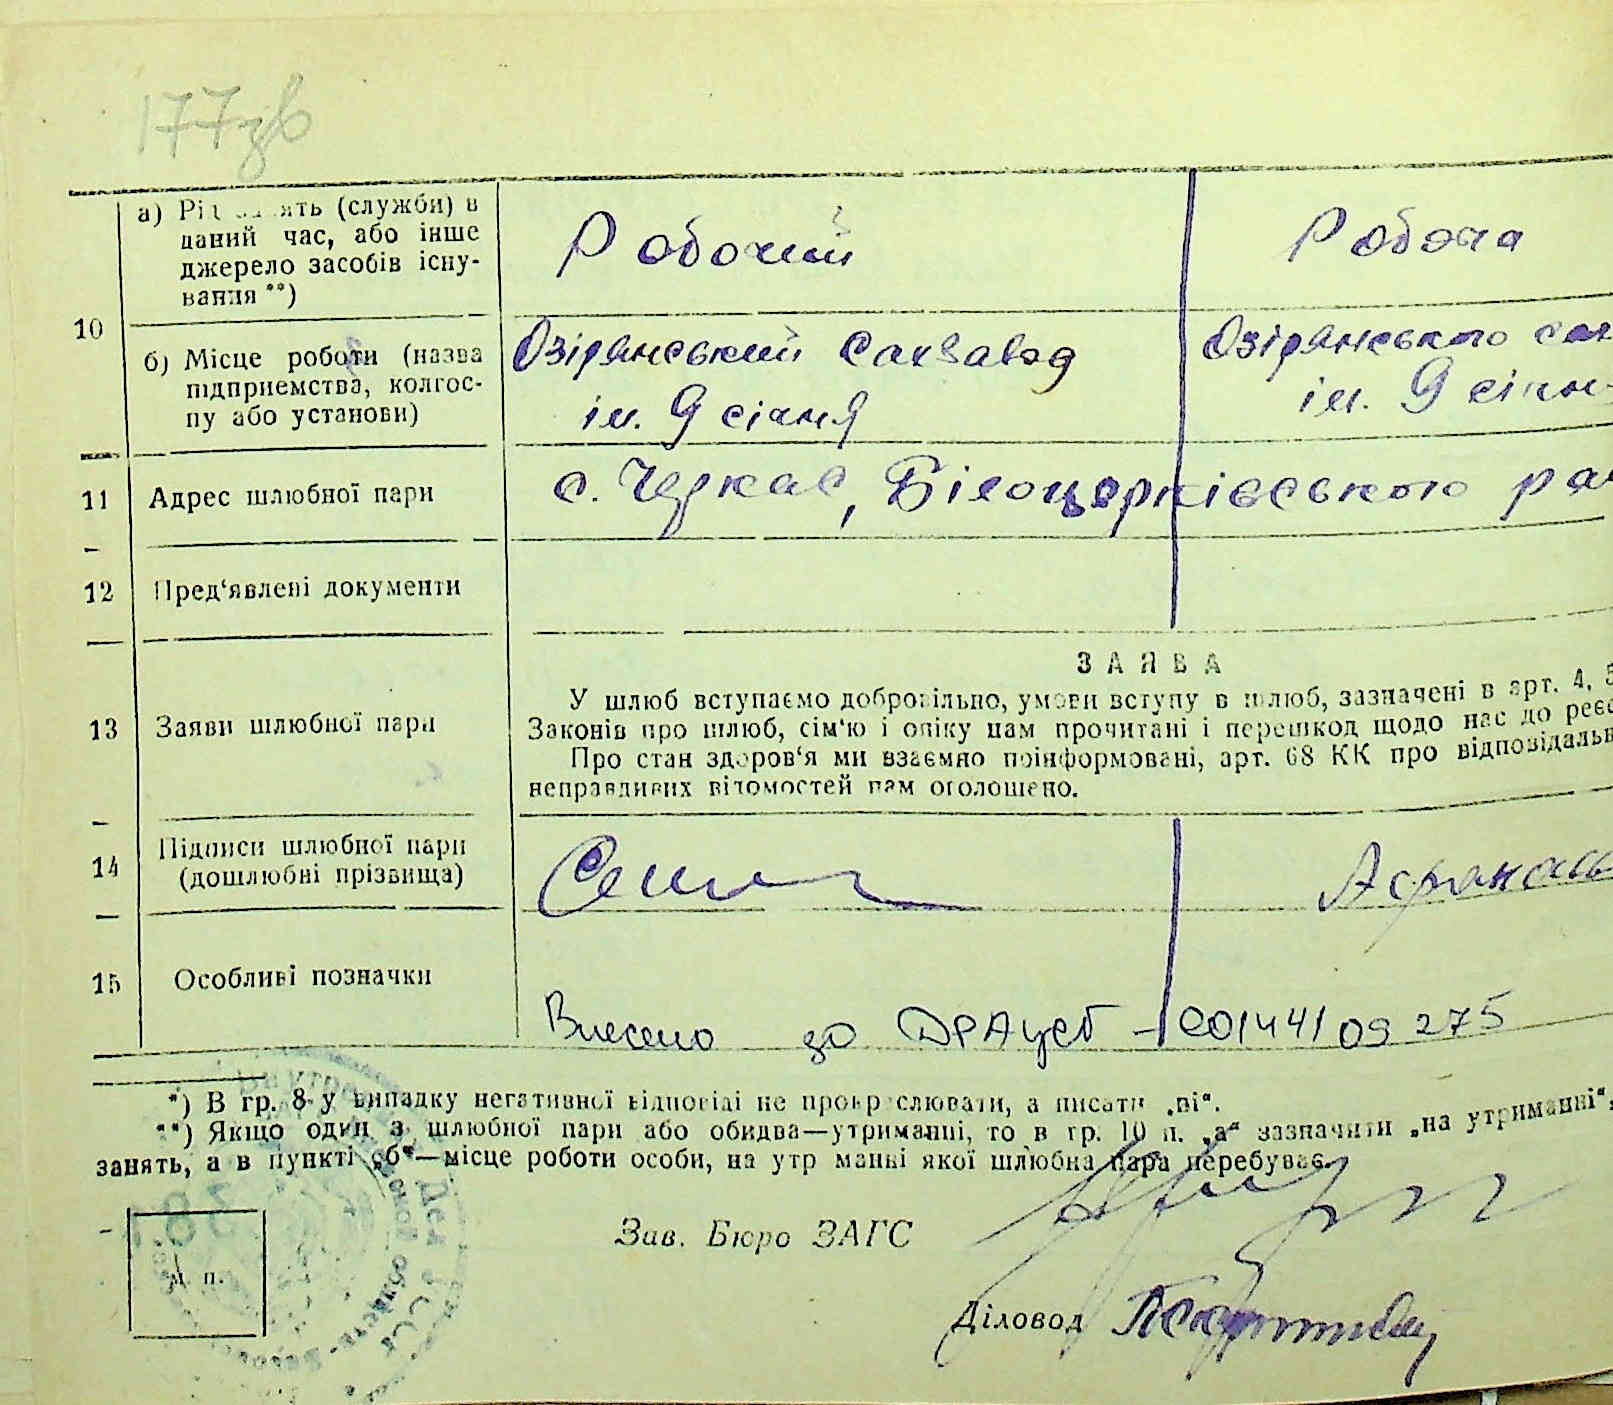 177зв
а) Рід занять (служби) в
даний час, або інше
джерело засобів існу-
вання **)
Робочий
Робоча
10
б) Місце роботи (назва
підприємства, колгос-
пу або установи)
Озірянський
ім. 9 січня
Озірянського
ім. 9 січн
11
Адрес шлюбної пари
с. Черкас, Білоцерківського ра
12
Пред‘явлені документи
ЗАЯВА
13
Заяви шлюбної пари
У шлюб вступаємо добровільно, умови вступу в шлюб, зазначені в арт. 4, 5
Законів про шлюб, сім‘ю і опіку нам прочитані і перешкод щодо нас до реєс
Про стан здоров‘я ми взаємно поінформовані, арт. 68 КК про відповідальн
неправдивих відомостей нам оголошено.
14
Підписи шлюбної пари
(дошлюбні прізвища)
Афанась
15
Особливі позначки
Внесено до ДРАцсг - 00144109275
*) В гр. 8 у випадку негативної відповіді не прокреслювати, а писати „ні“.
**) Якщо один з шлюбної пари або обидва—утриманці, то в гр. 10 п. „а“ зазначити „на утриманні“,
занять, а в пункті „б“—місце роботи особи, на утриманні якої шлюбна пара перебуває.
м. п.
Зав. Бюро ЗАГС
Діловод